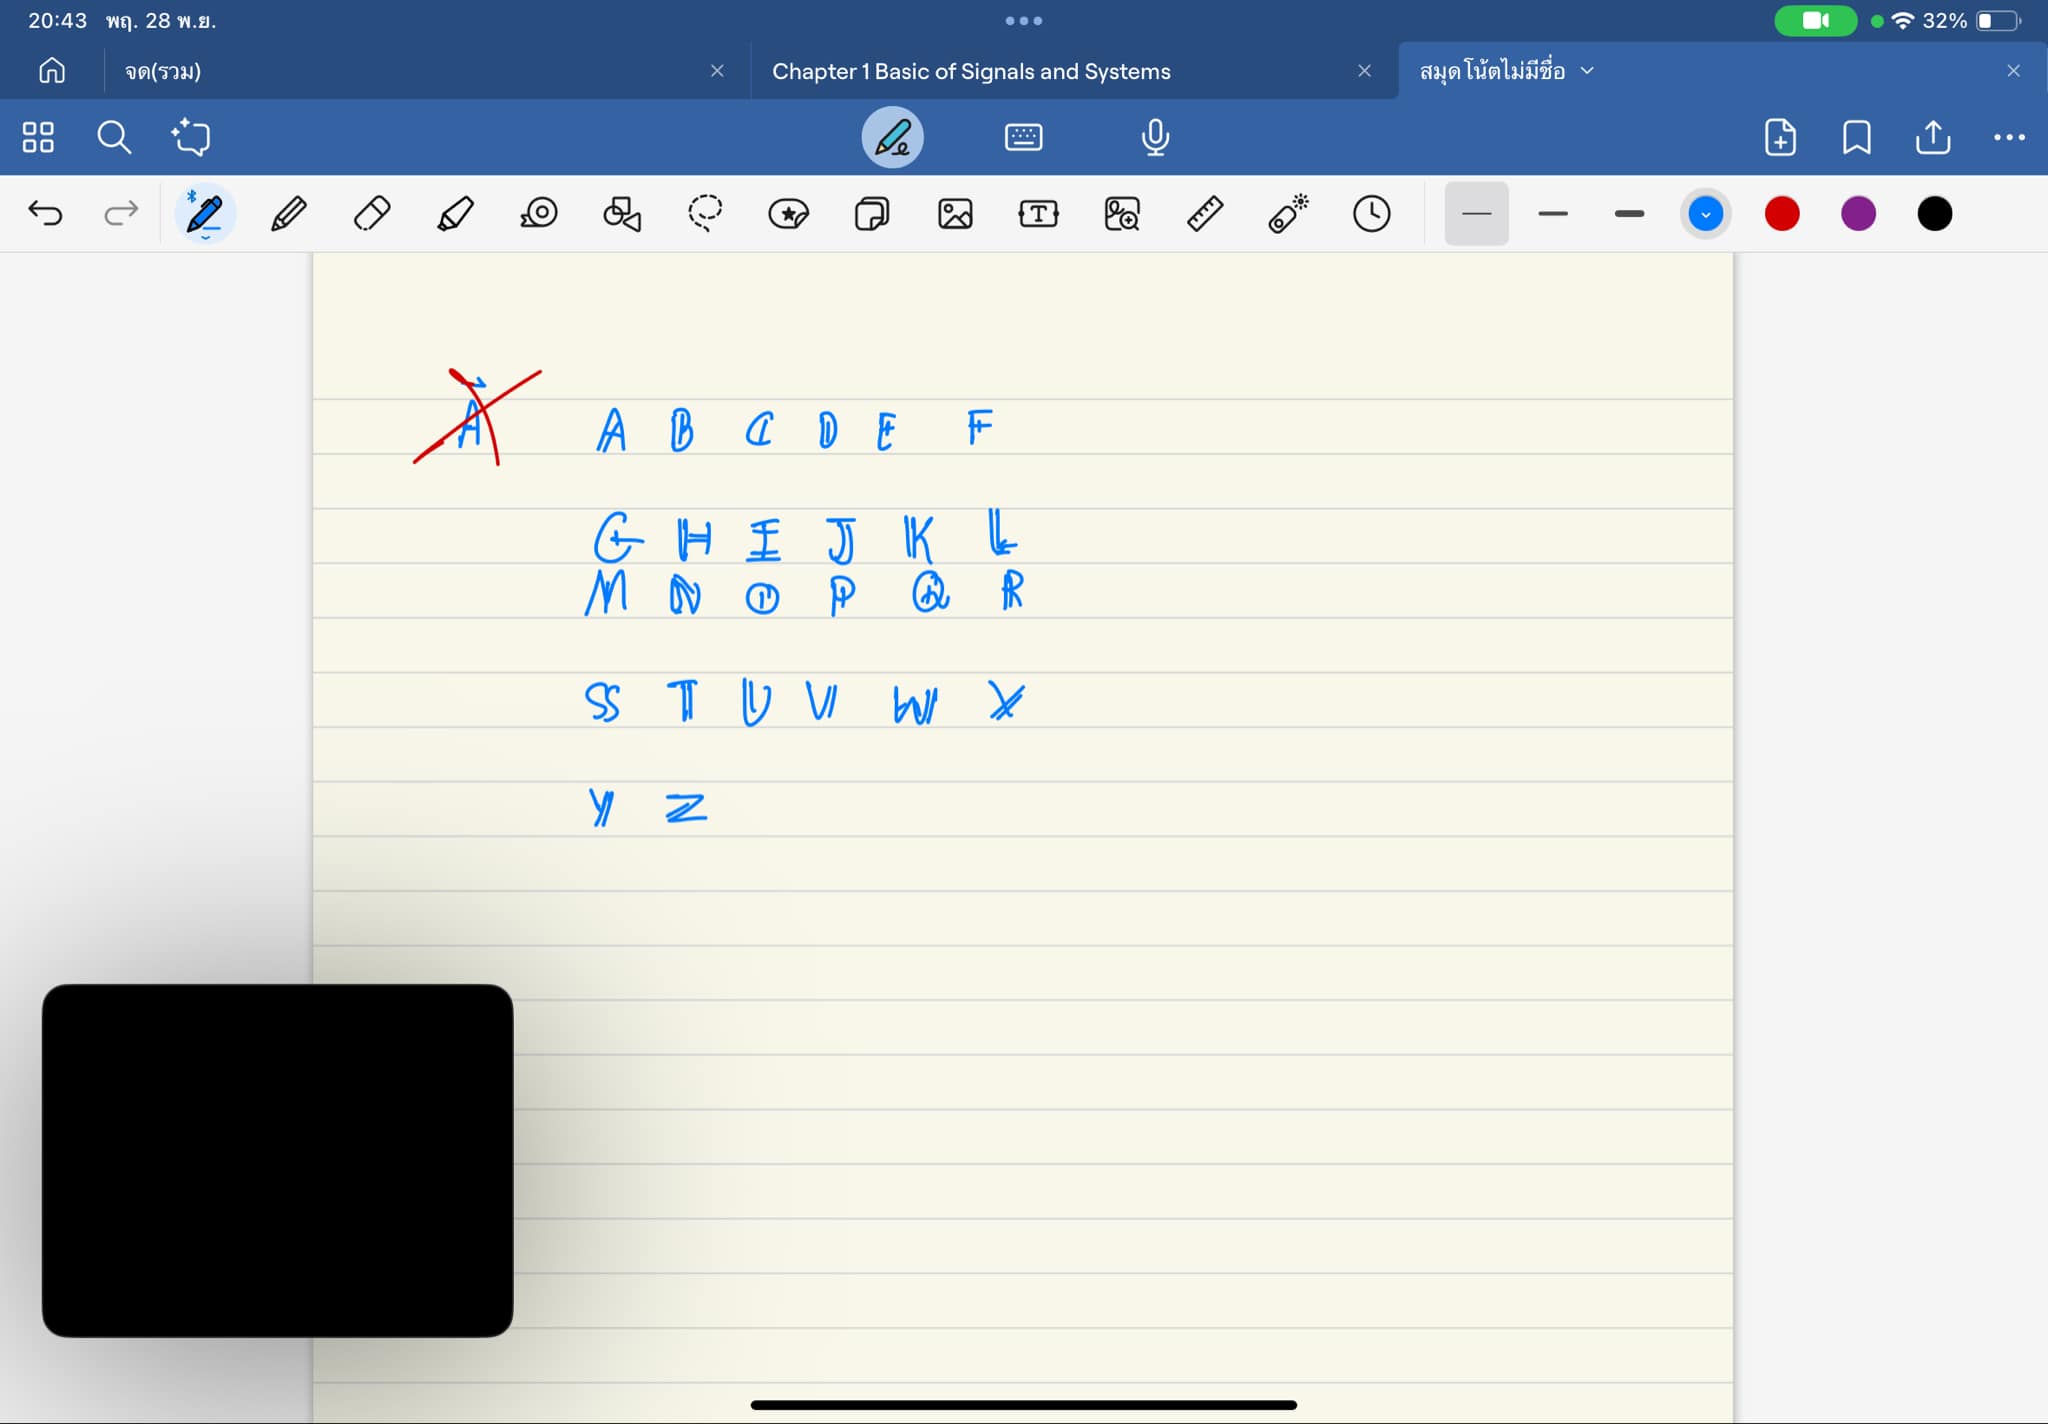 20:43 พฤ. 28 พ.ย. 32%
จด(รวม) Chapter 1 Basic of Signals and Systems สมุดโน้ตไม่มีชื่อ
A A B C D E F
G H I J K L
M N O P Q R
S T U V W X
Y Z